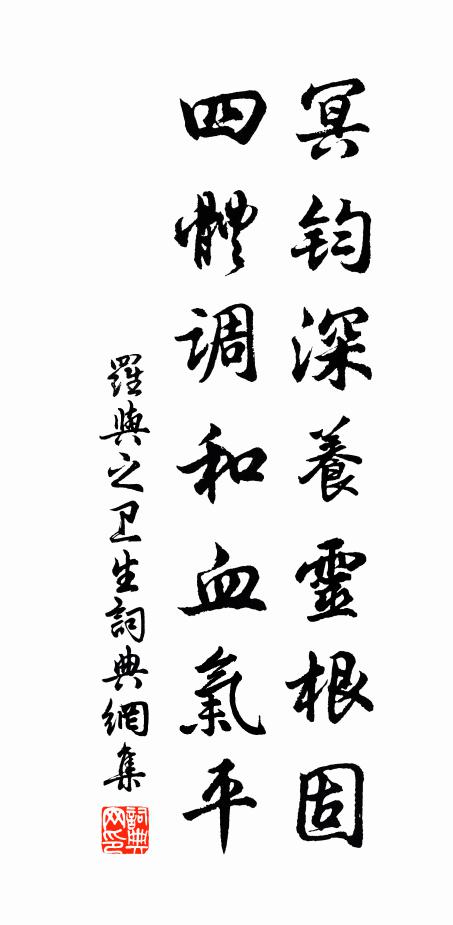 冥钧深養靈根固
四體调和血氣平
羅與之卫生詞典網集
詞典网印